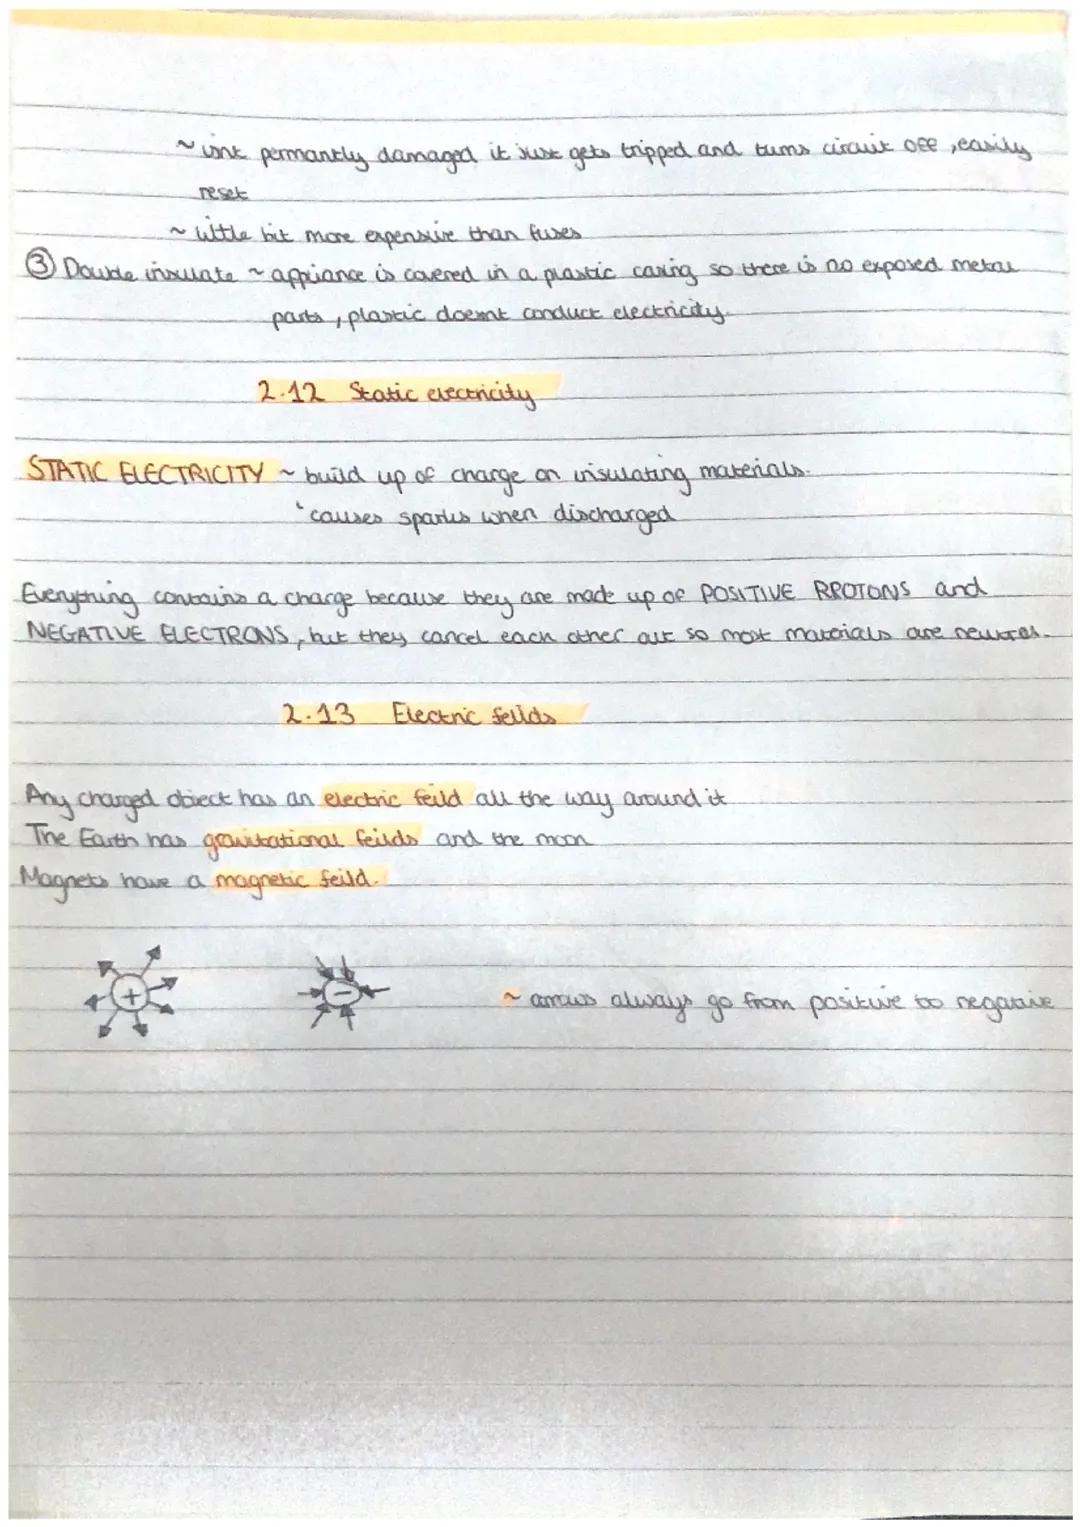 ~ isnt permantly damaged it just gets tripped and turns circuit off, easily
reset
~ little bit more expensive than fuses
③ Double insulate ~ appliance is covered in a plastic casing so there is no exposed metal
parts, plastic doesnt conduct electricity.
2.12 Static electricity
STATIC ELECTRICITY ~ build up of charge on insulating materials.
causes sparks when discharged
Everything contains a charge because they are made up of POSITIVE PROTONS and
NEGATIVE ELECTRONS, but they cancel each other out so most materials are neutral.
2.13 Electric feilds
Any charged object has an electric feild all the way around it
The Earth has gravitational feilds and the moon
Magnets have a magnetic feild.
+ - ~ arrows always go from positive to negative